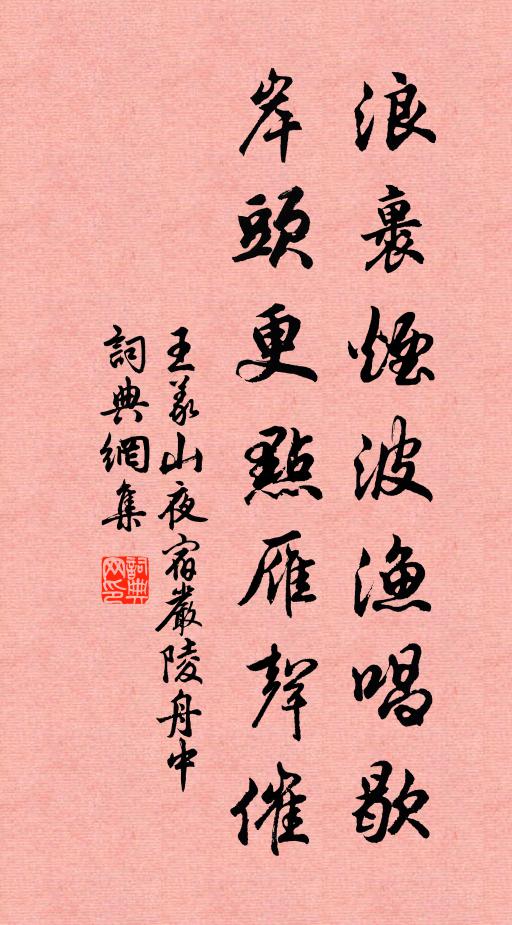 浪裏煙波漁唱歇
岸頭更點雁聲催
王義山夜宿嚴陵舟中
詞典網集
詞典网印